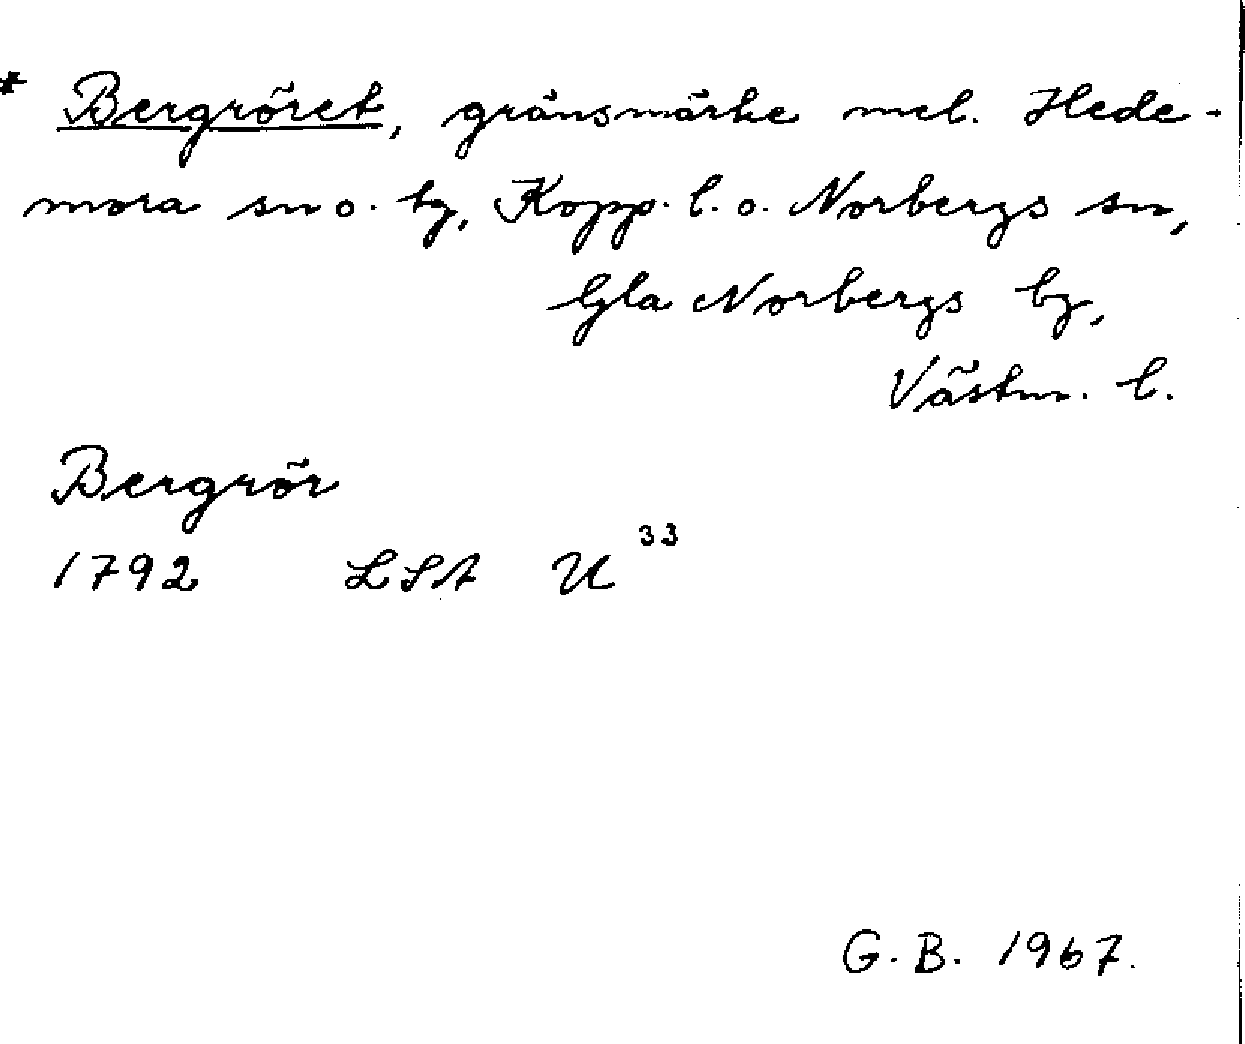 * Bergröret, gränsmärke mel. Hede-
mora sn o. tg, Kopp. l. o. Norbergs sn,
Gla Norbergs bg,
Västm. l.
Bergrör
1792 LSA U 33
G. B. 1967.